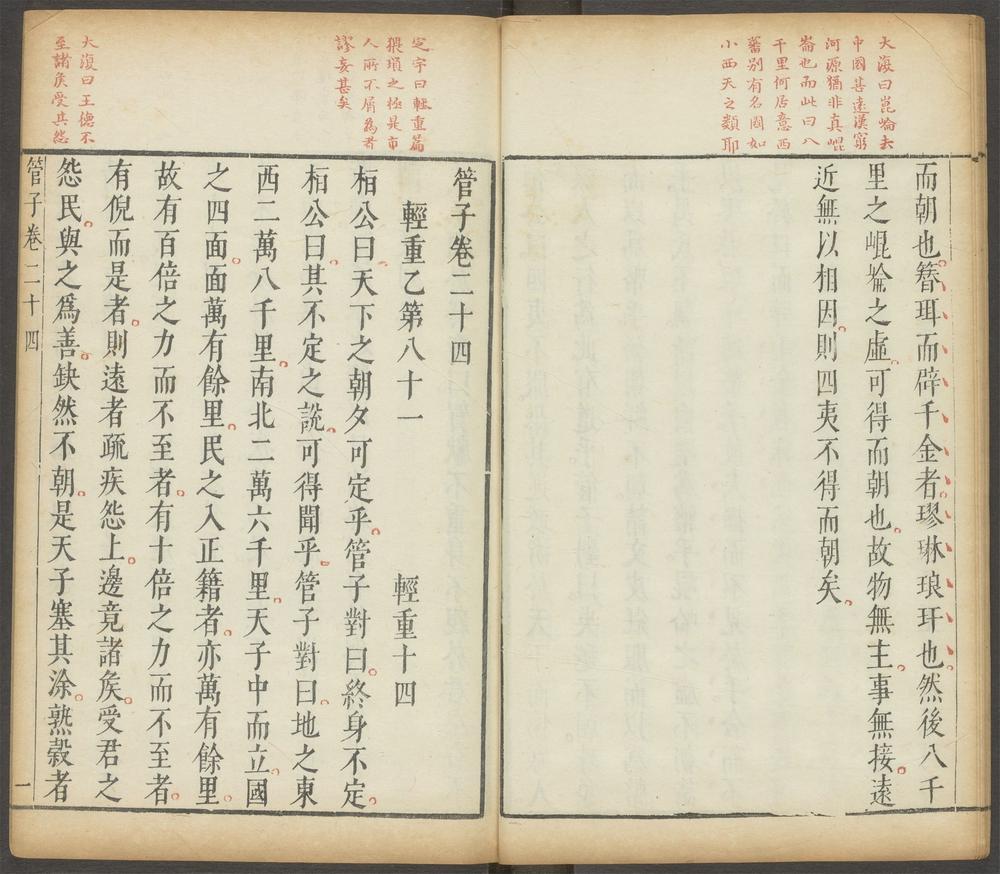 大復曰崑崙去
中國甚遠漢窮
河源猶非真崐
崙也而此曰八
千里何居意西
蕃别有名國如
小西天之類耶
而朝也簪珥而辟千金者璆琳琅玕也然後八千
里之崐崘之虛可得而朝也故物無主事無接遠
近無以相因則四夷不得而朝矣
定宇曰輕重篇
猥瑣之極是市
人所不屑為者
謬妄甚矣
大復曰王德不
至諸矦受其怨
管子卷二十四
輕重乙第八十一 輕重十四
桓公曰天下之朝夕可定乎管子對曰終身不定
桓公曰其不定之說可得聞乎管子對曰地之東
西二萬八千里南北二萬六千里天子中而立國
之四面面萬有餘里民之入正籍者亦萬有餘里
故有百倍之力而不至者有十倍之力而不至者
有倪而是者則遠者疏疾怨上邊竟諸矦受君之
怨民與之爲善缺然不朝是天子塞其涂熟穀者
管子卷二十四 一